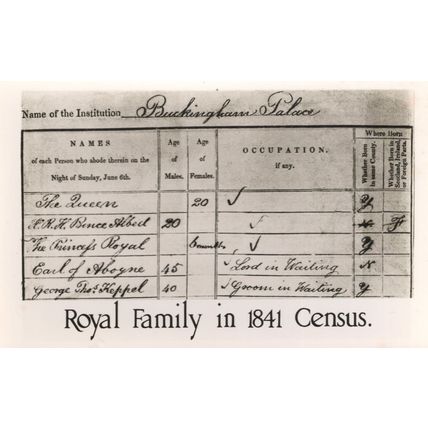 Name of the Institution Buckingham Palace
NAMES of each Person who abode therein on the Night of Sunday, June 6th. Age of Males. Age of Females. OCCUPATION. if any. Where Born Whether Born in same County. Whether Born in Scotland, Ireland, or Foreign Parts.
The Queen 20 ✓ Y
H.R.H. Prince Albert 20 F
The Princess Royal 6 months ✓ Y
Earl of Aboyne 45 ✓ Lord in Waiting N
George Thos. Keppel 40 ✓ Groom in Waiting Y
Royal Family in 1841 Census.